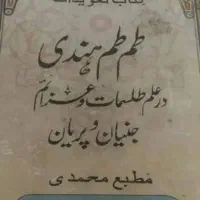 کتاب تعویذات
طم طم هندی
در علم طلسمات و عزائم
جنیان و پریان
مطبع محمدی